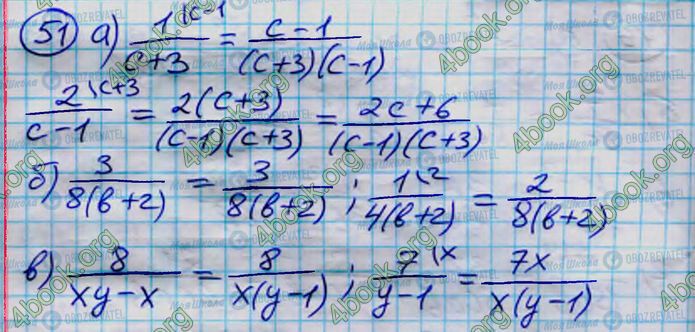 51 а) 1\c-1/c+3 = c-1/(c+3)(c-1)
2\c+3/c-1 = 2(c+3)/(c-1)(c+3) = 2c+6/(c-1)(c+3)
б) 3/8(в+2) = 3/8(в+2) ; 1\2/4(в+2) = 2/8(в+2)
в) 8/xy-x = 8/x(y-1) ; 7\x/y-1 = 7x/x(y-1)
4book.org
Моя Школа OBOZREVATEL